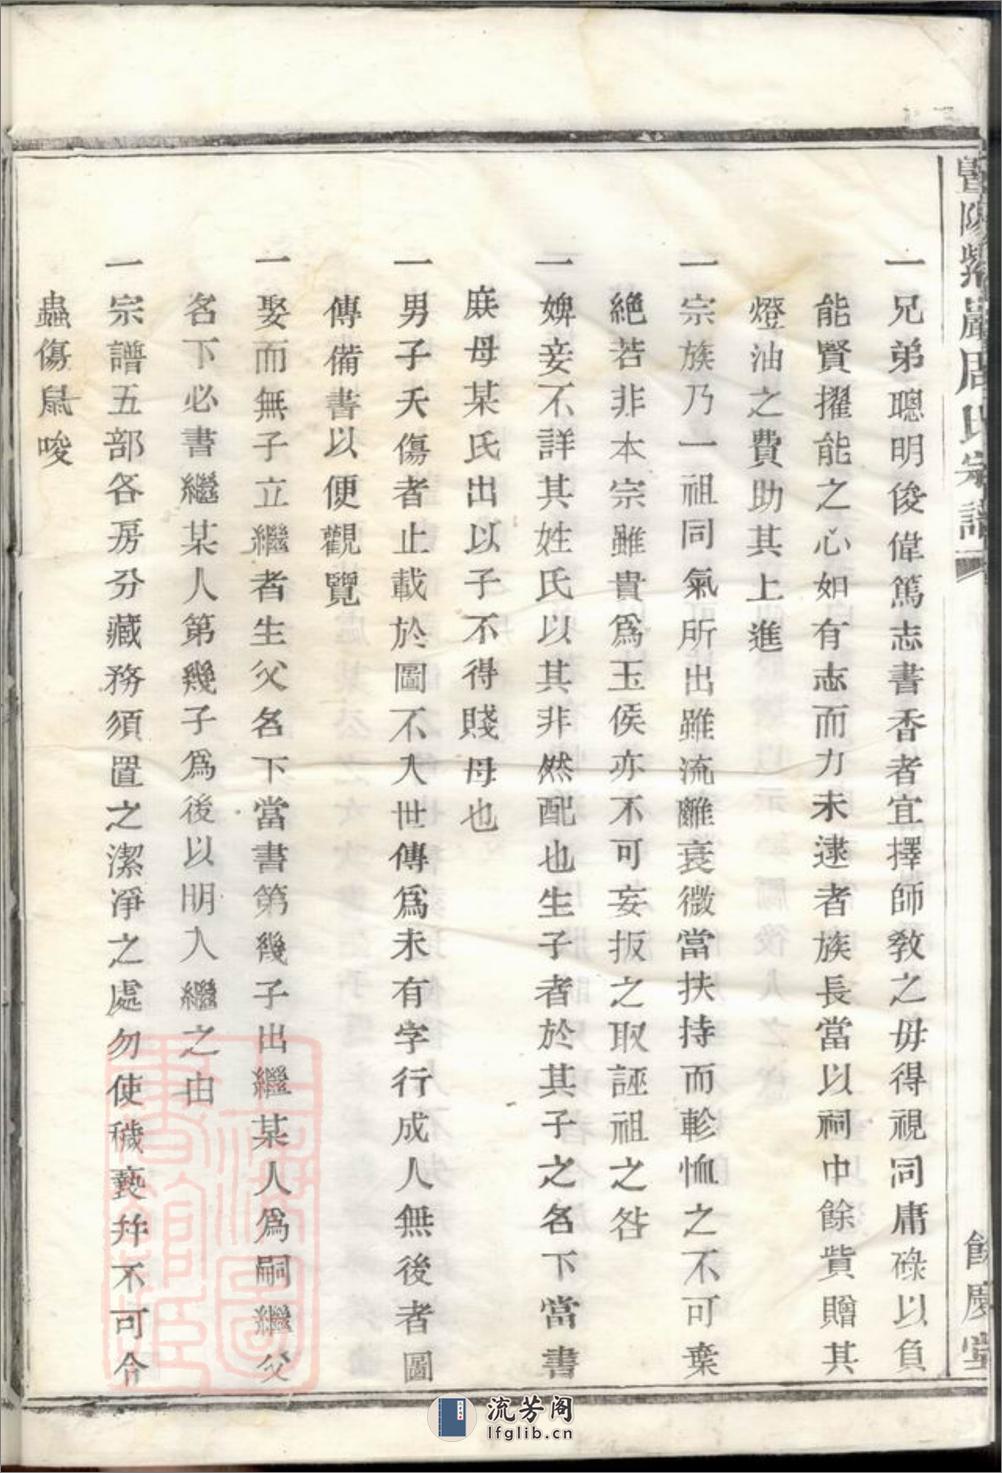 暨陽紫巖周氏宗譜
餘慶堂
一兄弟聰明俊偉篤志書香者宜擇師教之毋得視同庸碌以負
能賢擢能之心如有志而力未逮者族長當以祠中餘貲贈其
燈油之費助其上進
一宗族乃一祖同氣所出雖流離衰微當扶持而軫恤之不可棄
絶若非本宗雖貴爲玉侯亦不可妄扳之取誣祖之咎
一婢妾不詳其姓氏以其非然配也生子者於其子之名下當書
庶母某氏出以子不得賤母也
一男子夭傷者止載於圖不入世傳爲未有字行成人無後者圖
傳備書以便觀覽
一娶而無子立繼者生父名下當書第幾子出繼某人爲嗣繼父
名下必書繼某人第幾子爲後以明入繼之由
一宗譜五部各房分藏務須置之潔凈之處勿使穢褻并不可令
蟲傷鼠唆
上海圖書館藏
流芳阁
lfglib.cn